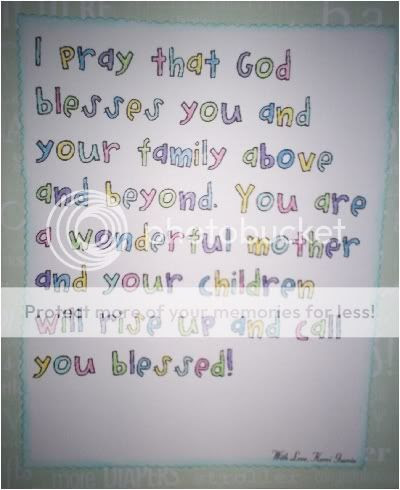 I pray that God
blesses you and
your family above
and beyond. You are
a wonderful mother
and your children
will rise up and call
you blessed!
With Love,
photobucket
Protect more of your memories for less!
more DIAPERS